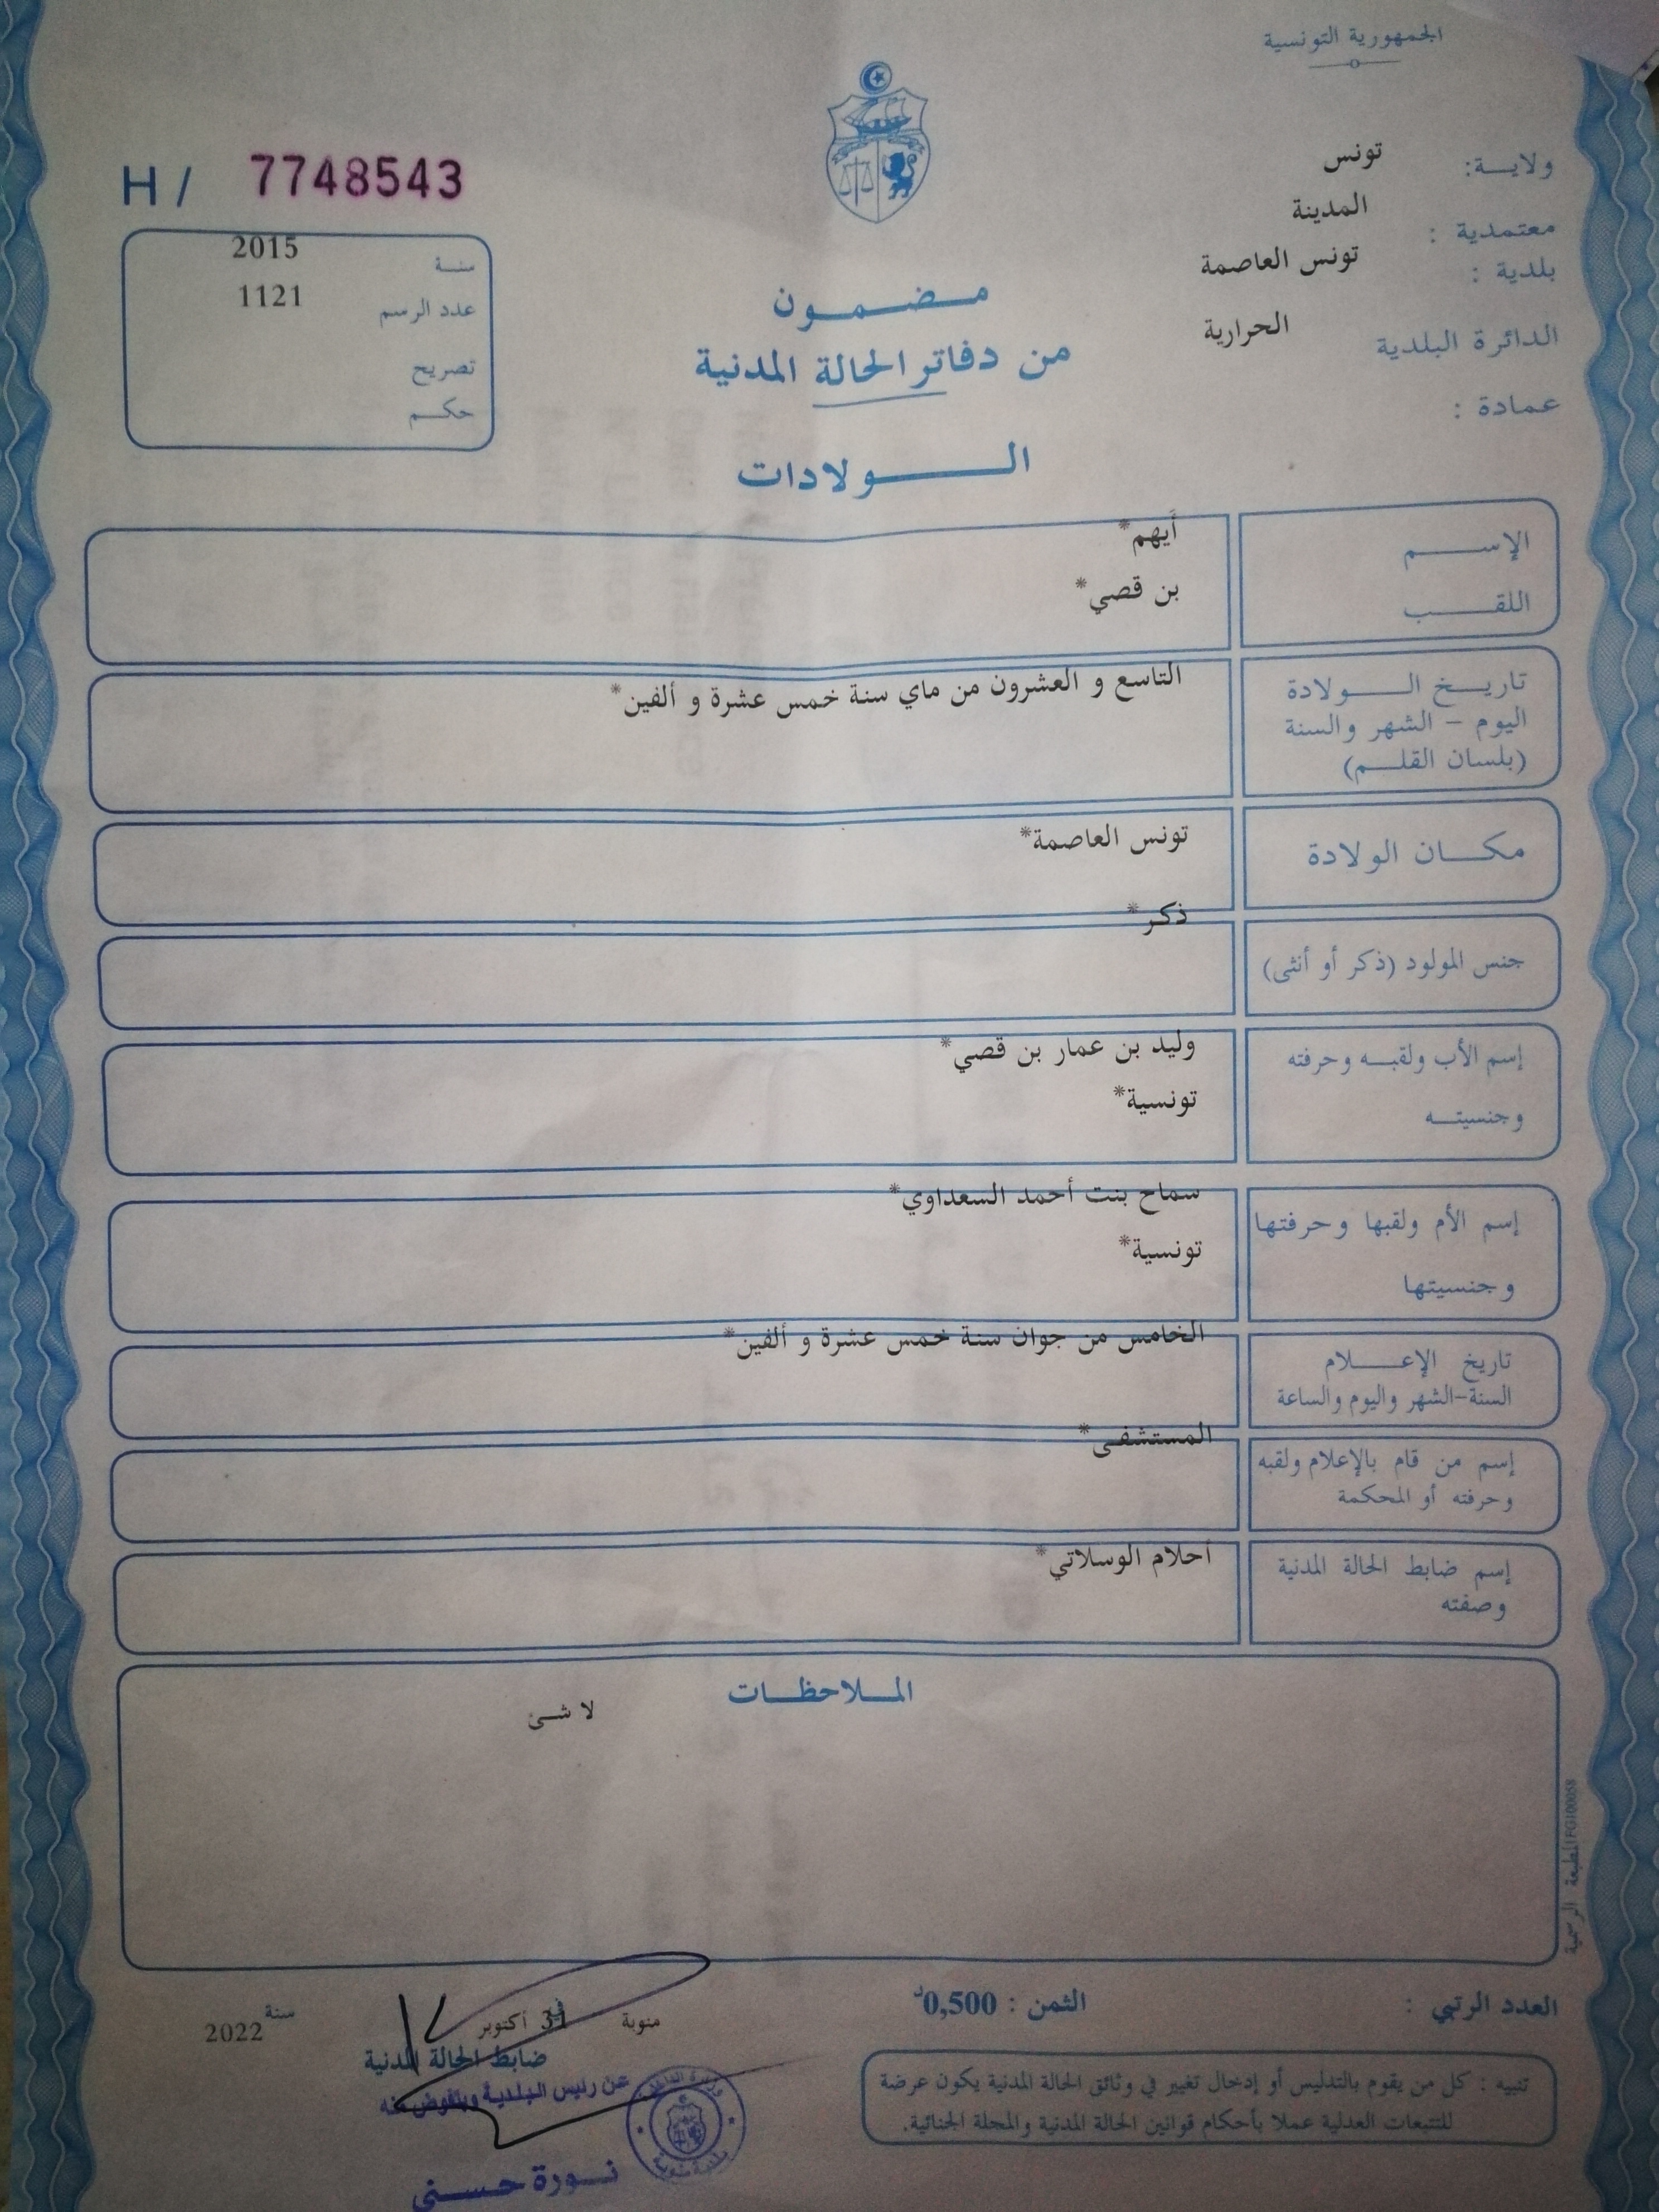 الجمهورية التونسية
ولايـــة: تونس
معتمدية : المدينة
بلدية : تونس العاصمة
الدائرة البلدية الحرارية
عمادة :
H / 7748543
سنــة 2015
عدد الرسم 1121
تصريح
حكــم
مـضـمـون
من دفاتر الحالة المدنية
الـــولادات
الإســـم أيهم*
اللقــــب بن قصي*
تاريـــخ الــــولادة التاسع و العشرون من ماي سنة خمس عشرة و ألفين*
اليوم – الشهر والسنة
(بلسان القلـــم)
مكــان الولادة تونس العاصمة*
جنس المولود (ذكر أو أنثى) ذكر*
إسم الأب ولقبــه وحرفته وليد بن عمار بن قصي*
وجنسيتــه تونسية*
إسم الأم ولقبها وحرفتها سماح بنت أحمد السعداوي*
وجنسيتها تونسية*
تاريخ الإعــــلام الخامس من جوان سنة خمس عشرة و ألفين*
السنة-الشهر واليوم والساعة
إسم من قام بالإعلام ولقبه المستشفى*
وحرفته أو المحكمة
إسم ضابط الحالة المدنية أحلام الوسلاتي*
وصفته
المــلاحظــات
لا شئ
المطبعة الرسمية FG100058
العدد الرتبي :
الثمن : 0,500د
منوبة في 31 أكتوبر سنة 2022
ضابط الحالة المدنية
عن رئيس البلدية وبتفوض منه
نـورة حسـني
بلدية منوبة
تنبيه : كل من يقوم بالتدليس أو إدخال تغيير في وثائق الحالة المدنية يكون عرضة
للتتبعات العدلية عملا بأحكام قوانين الحالة المدنية والمجلة الجنائية.